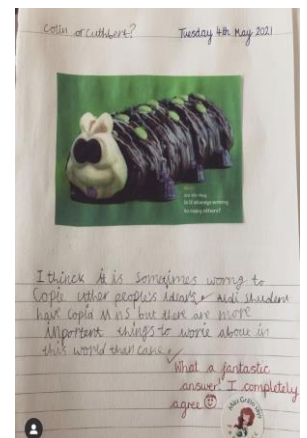 Colin or Cuthbert?
Tuesday 4th May 2021
Is it always wrong
to copy others?
I thinck it is sometimes worng to
Copie uther people's idears. Aldi shudent
have copid M n S but there are more
inportent things to worie about in
this world than cake.
What a fantastic
answer! I completely
agree